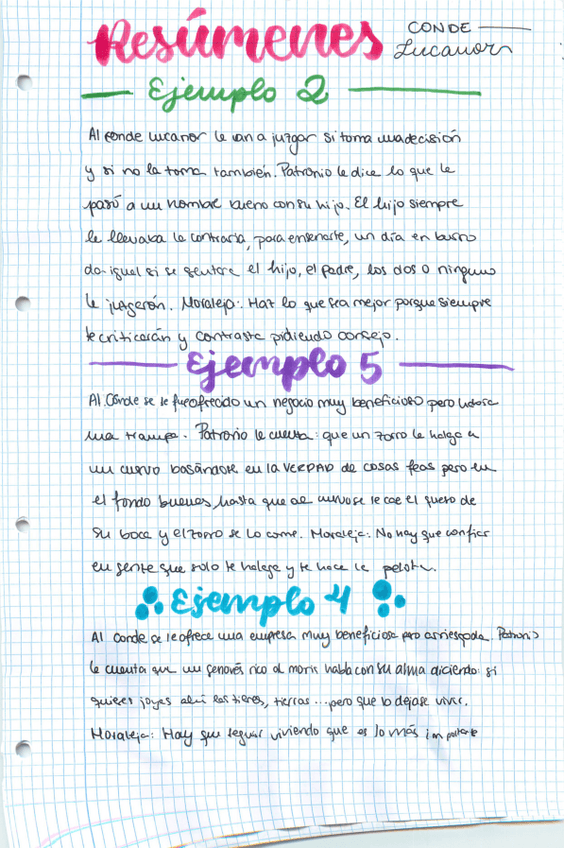 Resúmenes CONDE
Lucanor
Ejemplo 2
Al conde lucanor le van a juzgar si toma una decisión
y si no la toma también. Patronio le dice lo que le
pasó a un hombre bueno con su hijo. El hijo siempre
le llevaba la contraria, para enseñarle, un día en burro
da igual si se sentara el hijo, el padre, los dos o ninguno
le juzgaron. Moraleja: Haz lo que sea mejor porque siempre
te criticarán y contrasta pidiendo consejo.
Ejemplo 5
Al Conde se le fue ofrecido un negocio muy beneficioso pero
una trampa. Patronio le cuenta: que un zorro le halaga a
un cuervo basándose en la VERDAD de cosas feas pero en
el fondo buenas, hasta que al cuervo se le cae el queso de
su boca y el zorro se lo come. Moraleja: No hay que confiar
en gente que solo te halaga y te hace la pelota.
Ejemplo 4
Al Conde se le ofrece una empresa muy beneficiosa pero arriesgada. Patronio
le cuenta que un genovés rico al morir habla con su alma diciendo: si
quieres joyas ahí las tienes, tierras ... pero que lo dejase vivir.
Moraleja: Hay que seguir viviendo que es lo más importante